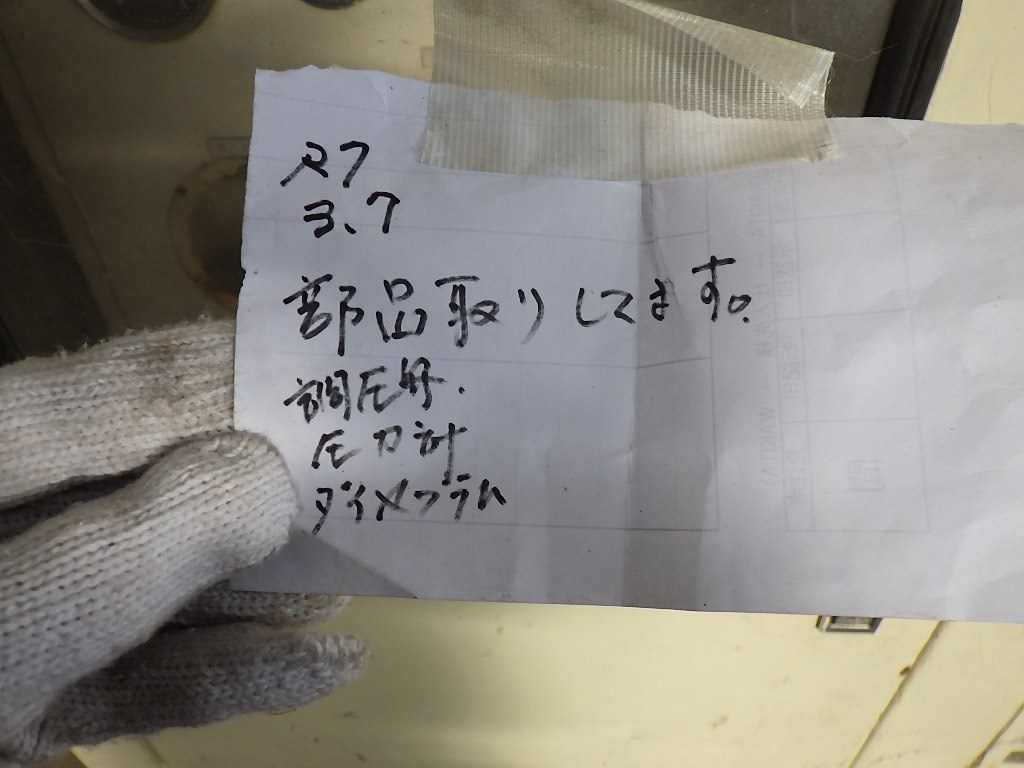 R7
3.7
部品取りしてます。
調圧弁.
圧力計
ダイヤフラム